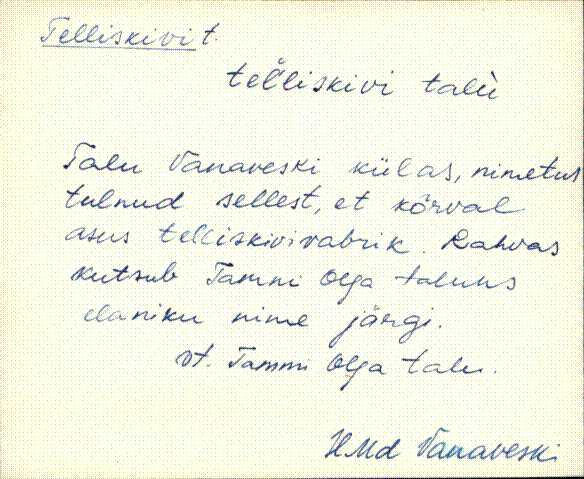 Telliskivi t.
tel̀liskivi talù
Talu Vanaveski külas, nimetus
tulnud sellest, et kõrval
asus telliskivivabrik. Rahvas
kutsub Tammi Olga taluks
elaniku nime järgi.
vt. Tammi Olga talu.
HMd Vanaveski